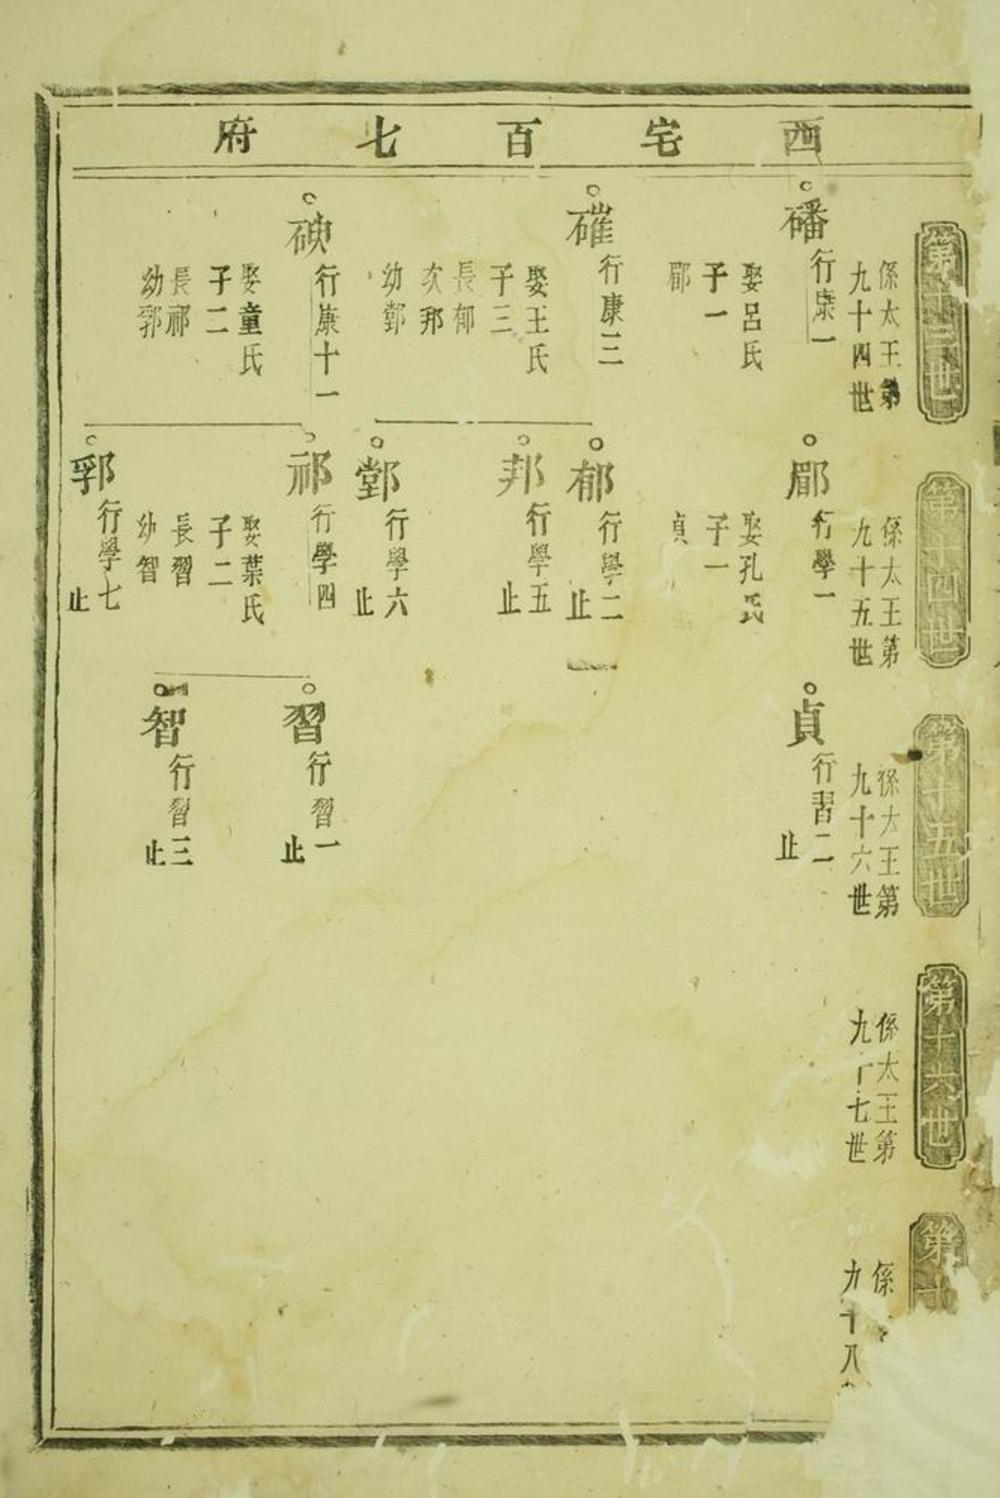 西宅百七府
第十三世
係太王第
九十四世
磻
行康一
娶呂氏
子一
郿
磪
行康三
娶王氏
子三
長郁
次邦
幼鄞
碘
行康十一
娶童氏
子二
長祁
幼郛
第十四世
係太王第
九十五世
郿
行學一
娶孔氏
子一
貞
郁
行學二
止
邦
行學五
止
鄞
行學六
止
祁
行學四
娶葉氏
子二
長習
幼智
郛
行學七
止
第十五世
係太王第
九十六世
貞
行習二
止
習
行習一
止
智
行習三
止
第十六世
係太王第
九十七世
第十
係
九十八